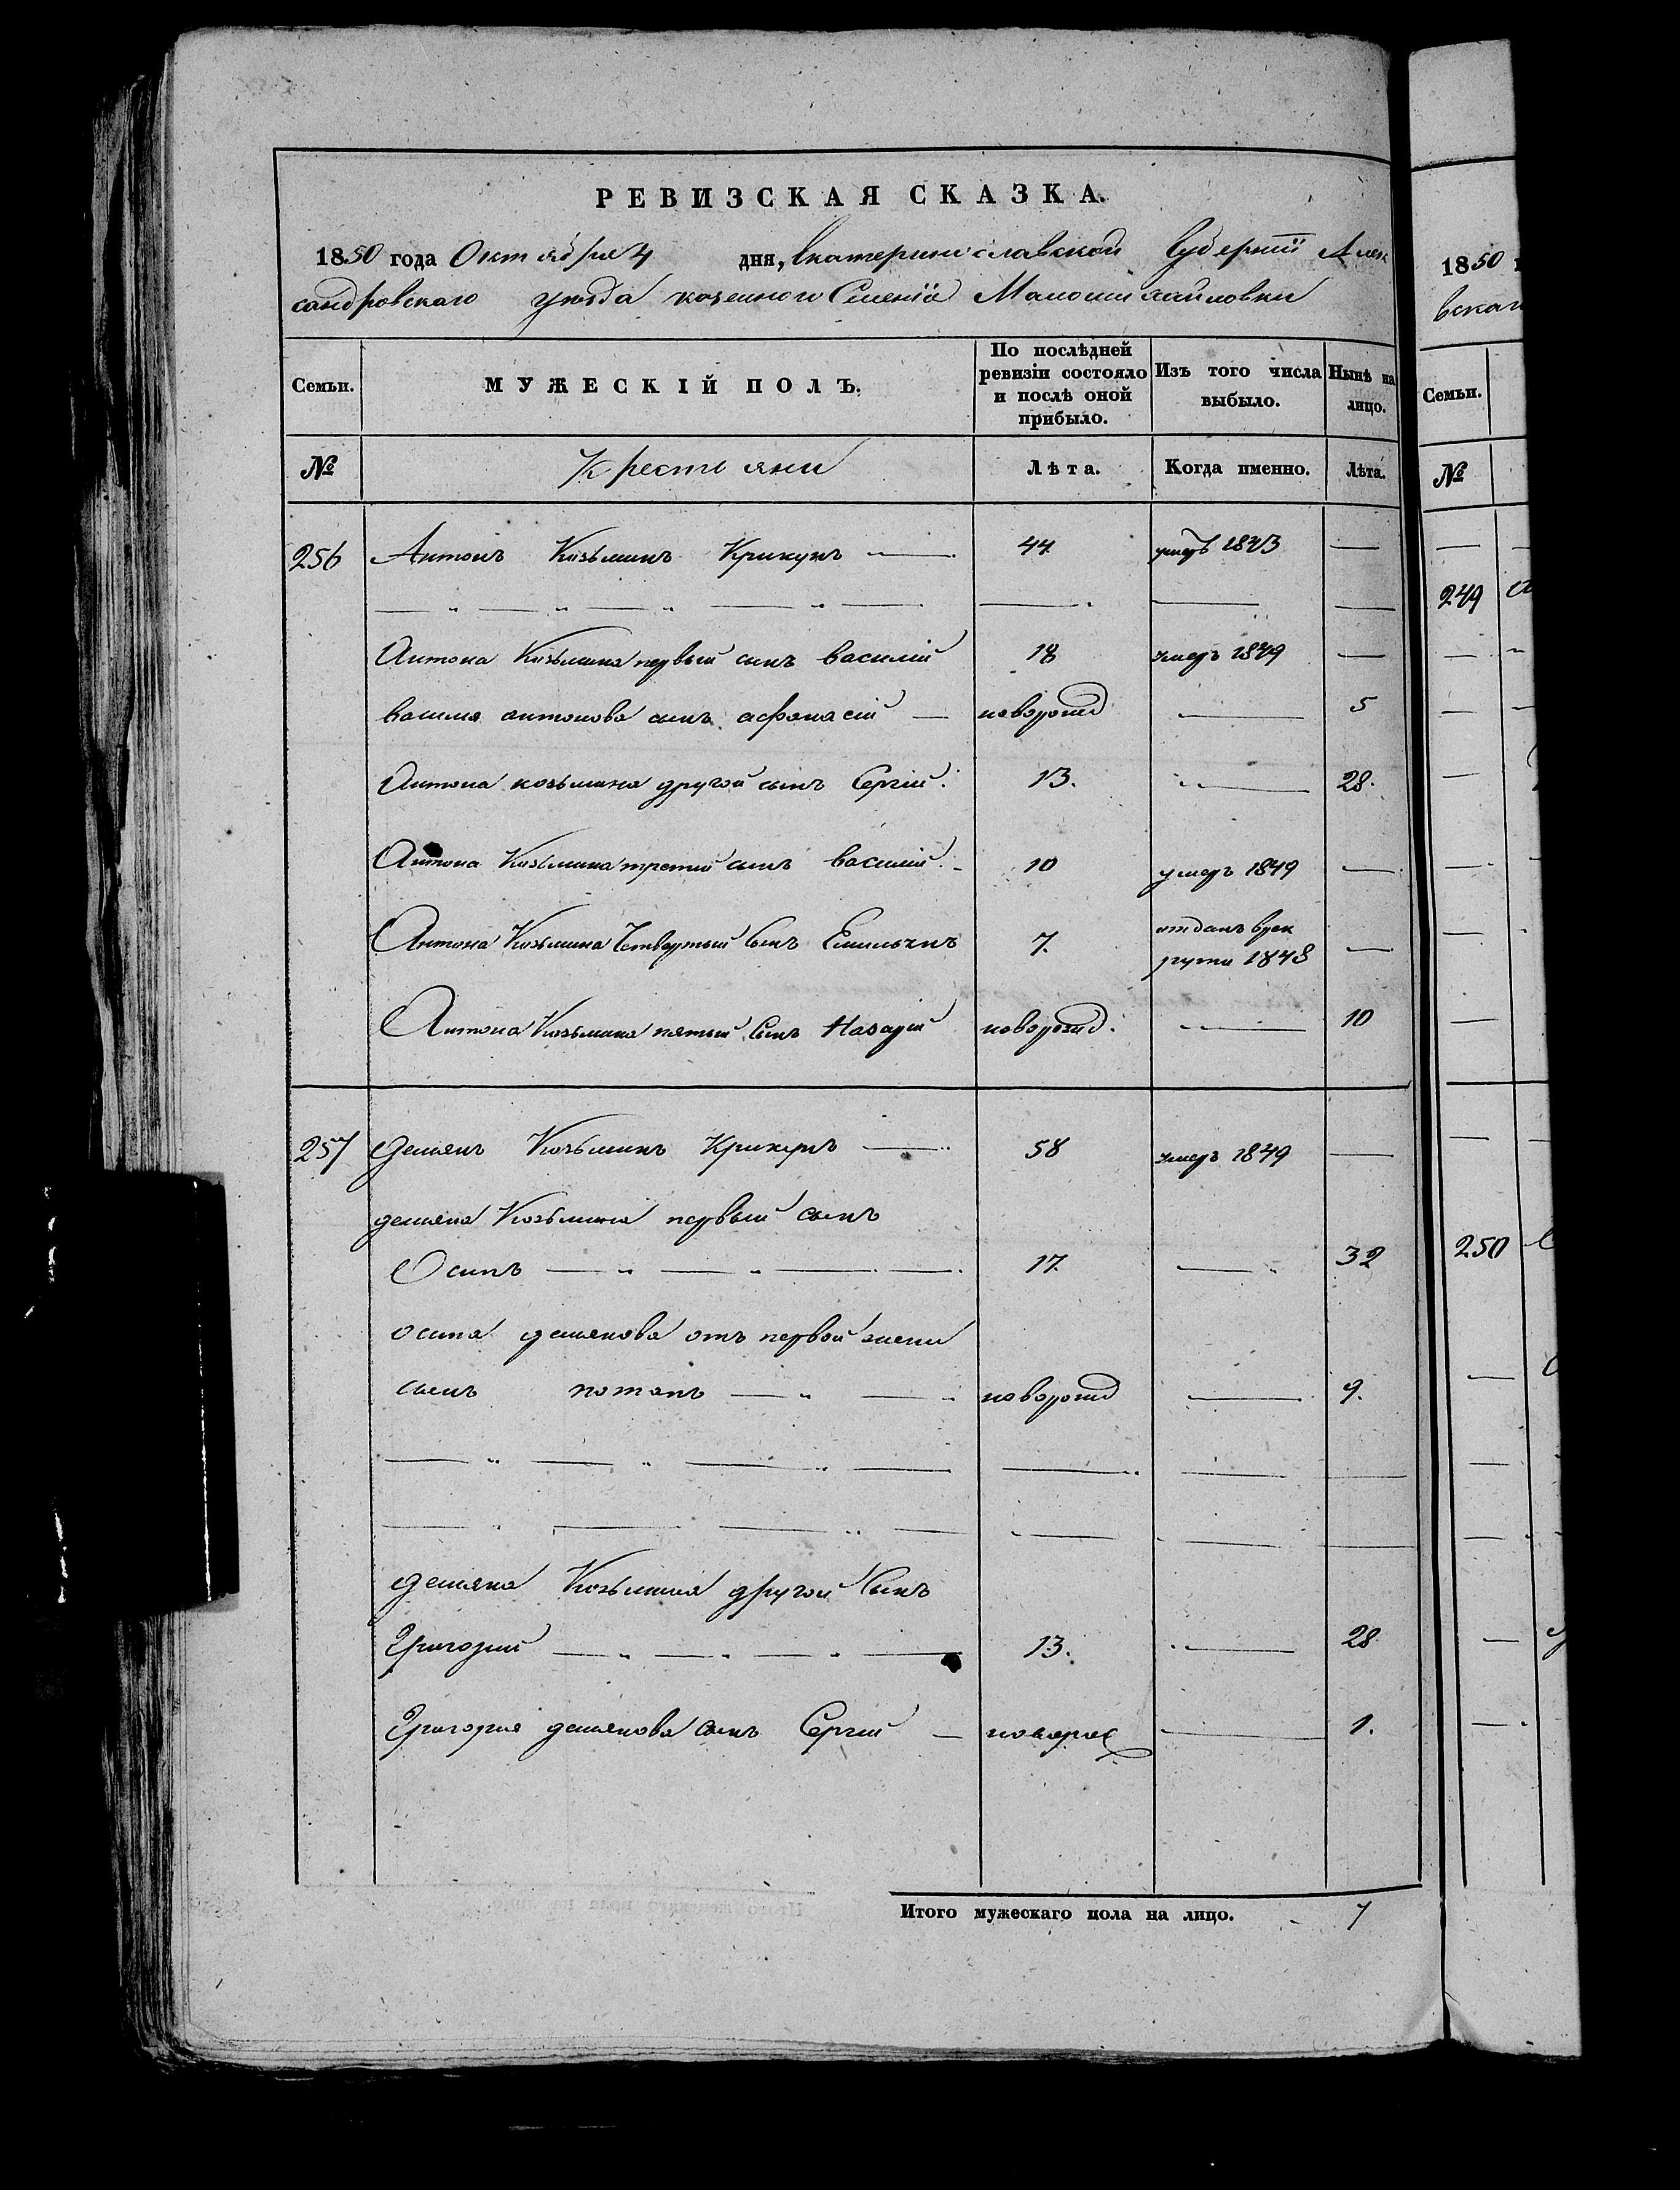 РЕВИЗСКАЯ СКАЗКА.
1850 года Октября 4 дня, Екатеринославской Губернии Алек
сандровскаго уезда казенного Селенія Маломихайловки
Семьи. МУЖЕСКІЙ ПОЛЪ. По послѣдней ревизіи состояло и послѣ оной прибыло. Изъ того числа выбыло. Нынѣ на лицо.
№ Крестьяни Лѣта. Когда именно. Лѣта.
256 Антонъ Козьминъ Крикунъ 44 умеръ 1843
Антона Козьмина первый сынъ Василій 18 умеръ 1849
Василя антонова сынъ афонасій новорожд 5
Антона козьмина другой сынъ Сергій. 13. 28.
Антона Козьмина третій сынъ василій. 10 умеръ 1849
Антона Козьмина Четвертый Сынъ Емельянъ 7. отданъ врек
руты 1848
Антона Козьмина пятый Сынъ Назарій новорожд. 10
257 Демянъ Козьминъ Крикунъ 58 умеръ 1849
демяна Козьмина первый сынъ
Осипъ 17. 32
осипа демянова отъ первой жены
сынъ потапъ новорожд 9.
демяна Козьмина другой Сынъ
Григорий 13. 28
Григория демянова сынъ Сергій 1.
Итого мужескаго пола на лицо. 7
1850
вскаго
Семьи.
№
249
250